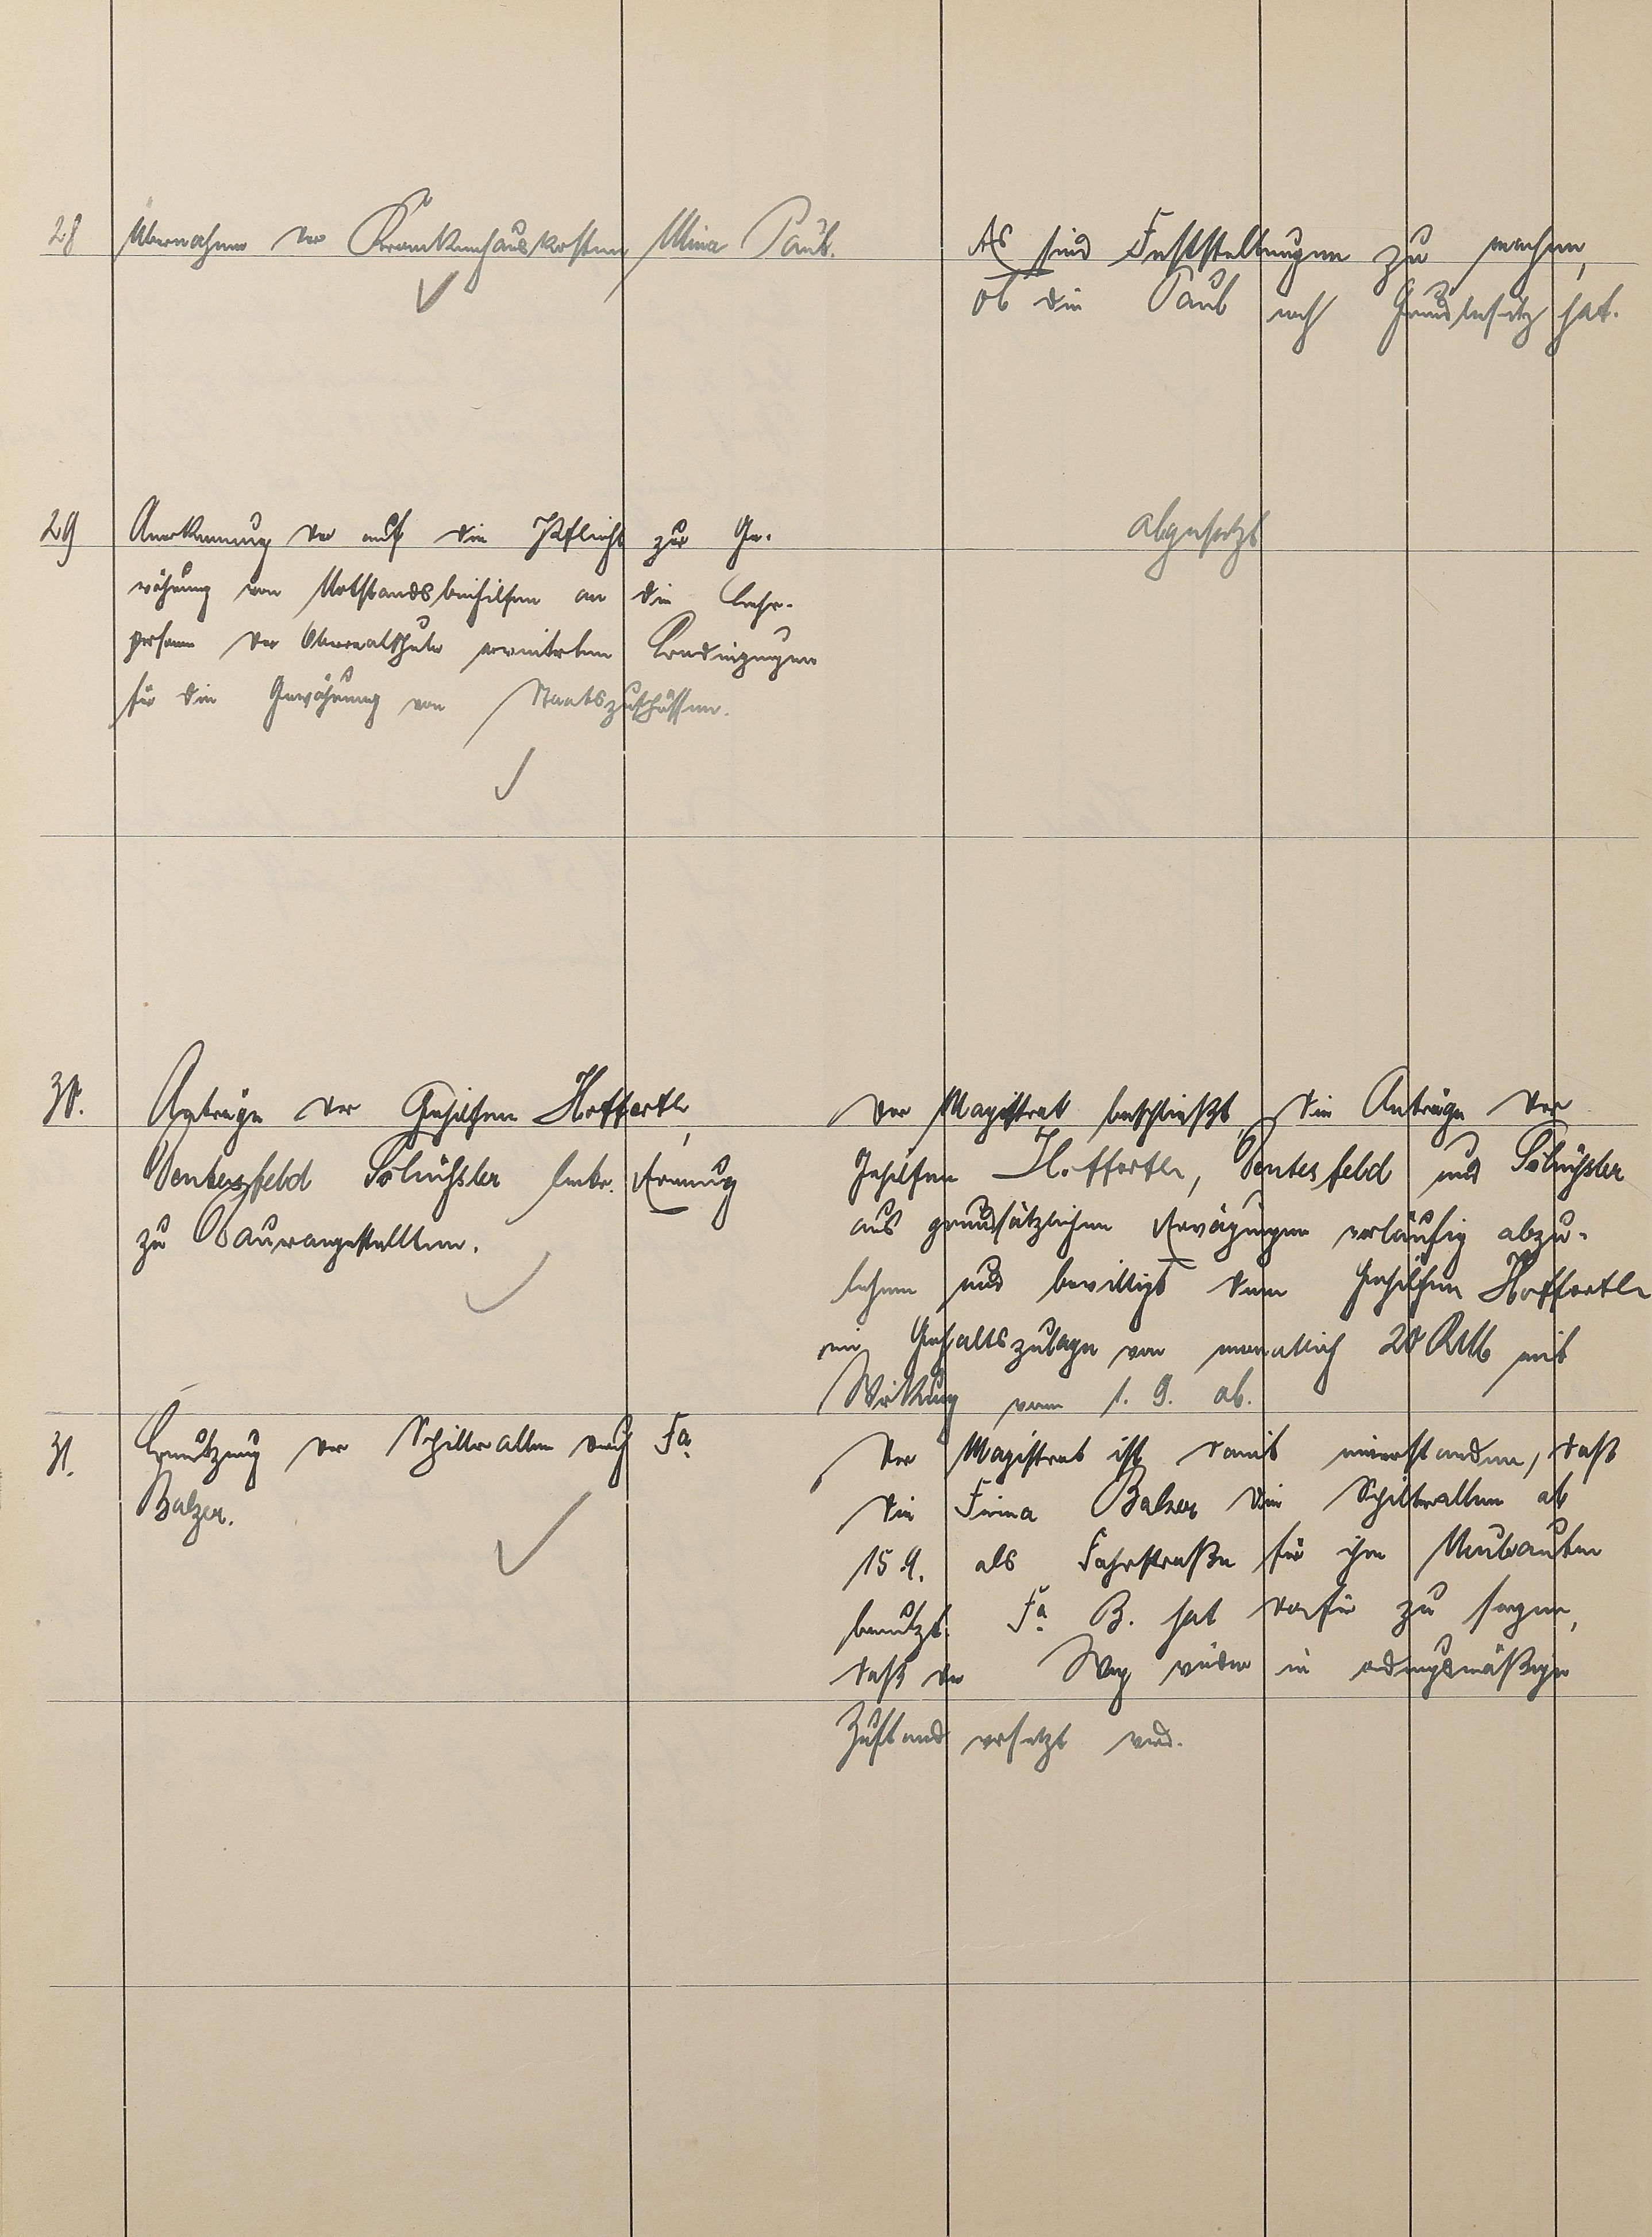 28 Übernahme der Krankenhauskosten Mina Paul.
Es sind Feststellungen zu machen,
ob die Paul noch Grundbesitz hat.
29 Anerkennung der auf die Pflicht zur Ge-
währung von Notstandsbeihilfen an die Lehr-
personen der Oberrealschule erweiterten Bedingungen
für die Gewährung von Staatszuschüssen.
abgesetzt
30. Anträge der Gehilfen Hoffertle,
Dentesfeld Schüssler betr. Ernennung
zu Dauerangestellten.
Der Magistrat beschließt, die Anträge der
Gehilfen Hoffertle, Dentesfeld und Schüssler
aus grundsätzlichen Erwägungen vorläufig abzu-
lehnen und bewilligt dem Gehilfen Hoffertle
eine Gehaltszulage von monatlich 20 RM mit
Wirkung vom 1. 9. ab.
31. Benutzung der Schillerallee durch Fa.
Balzer.
Der Magistrat ist damit einverstanden, daß
die Firma Balzer die Schillerallee ab
15 9. als Fahrstraße für ihre Neubauten
benutzt. Fa. B. hat dafür zu sorgen,
daß der Weg wieder in ordnungsmäßigen
Zustand versetzt wird.